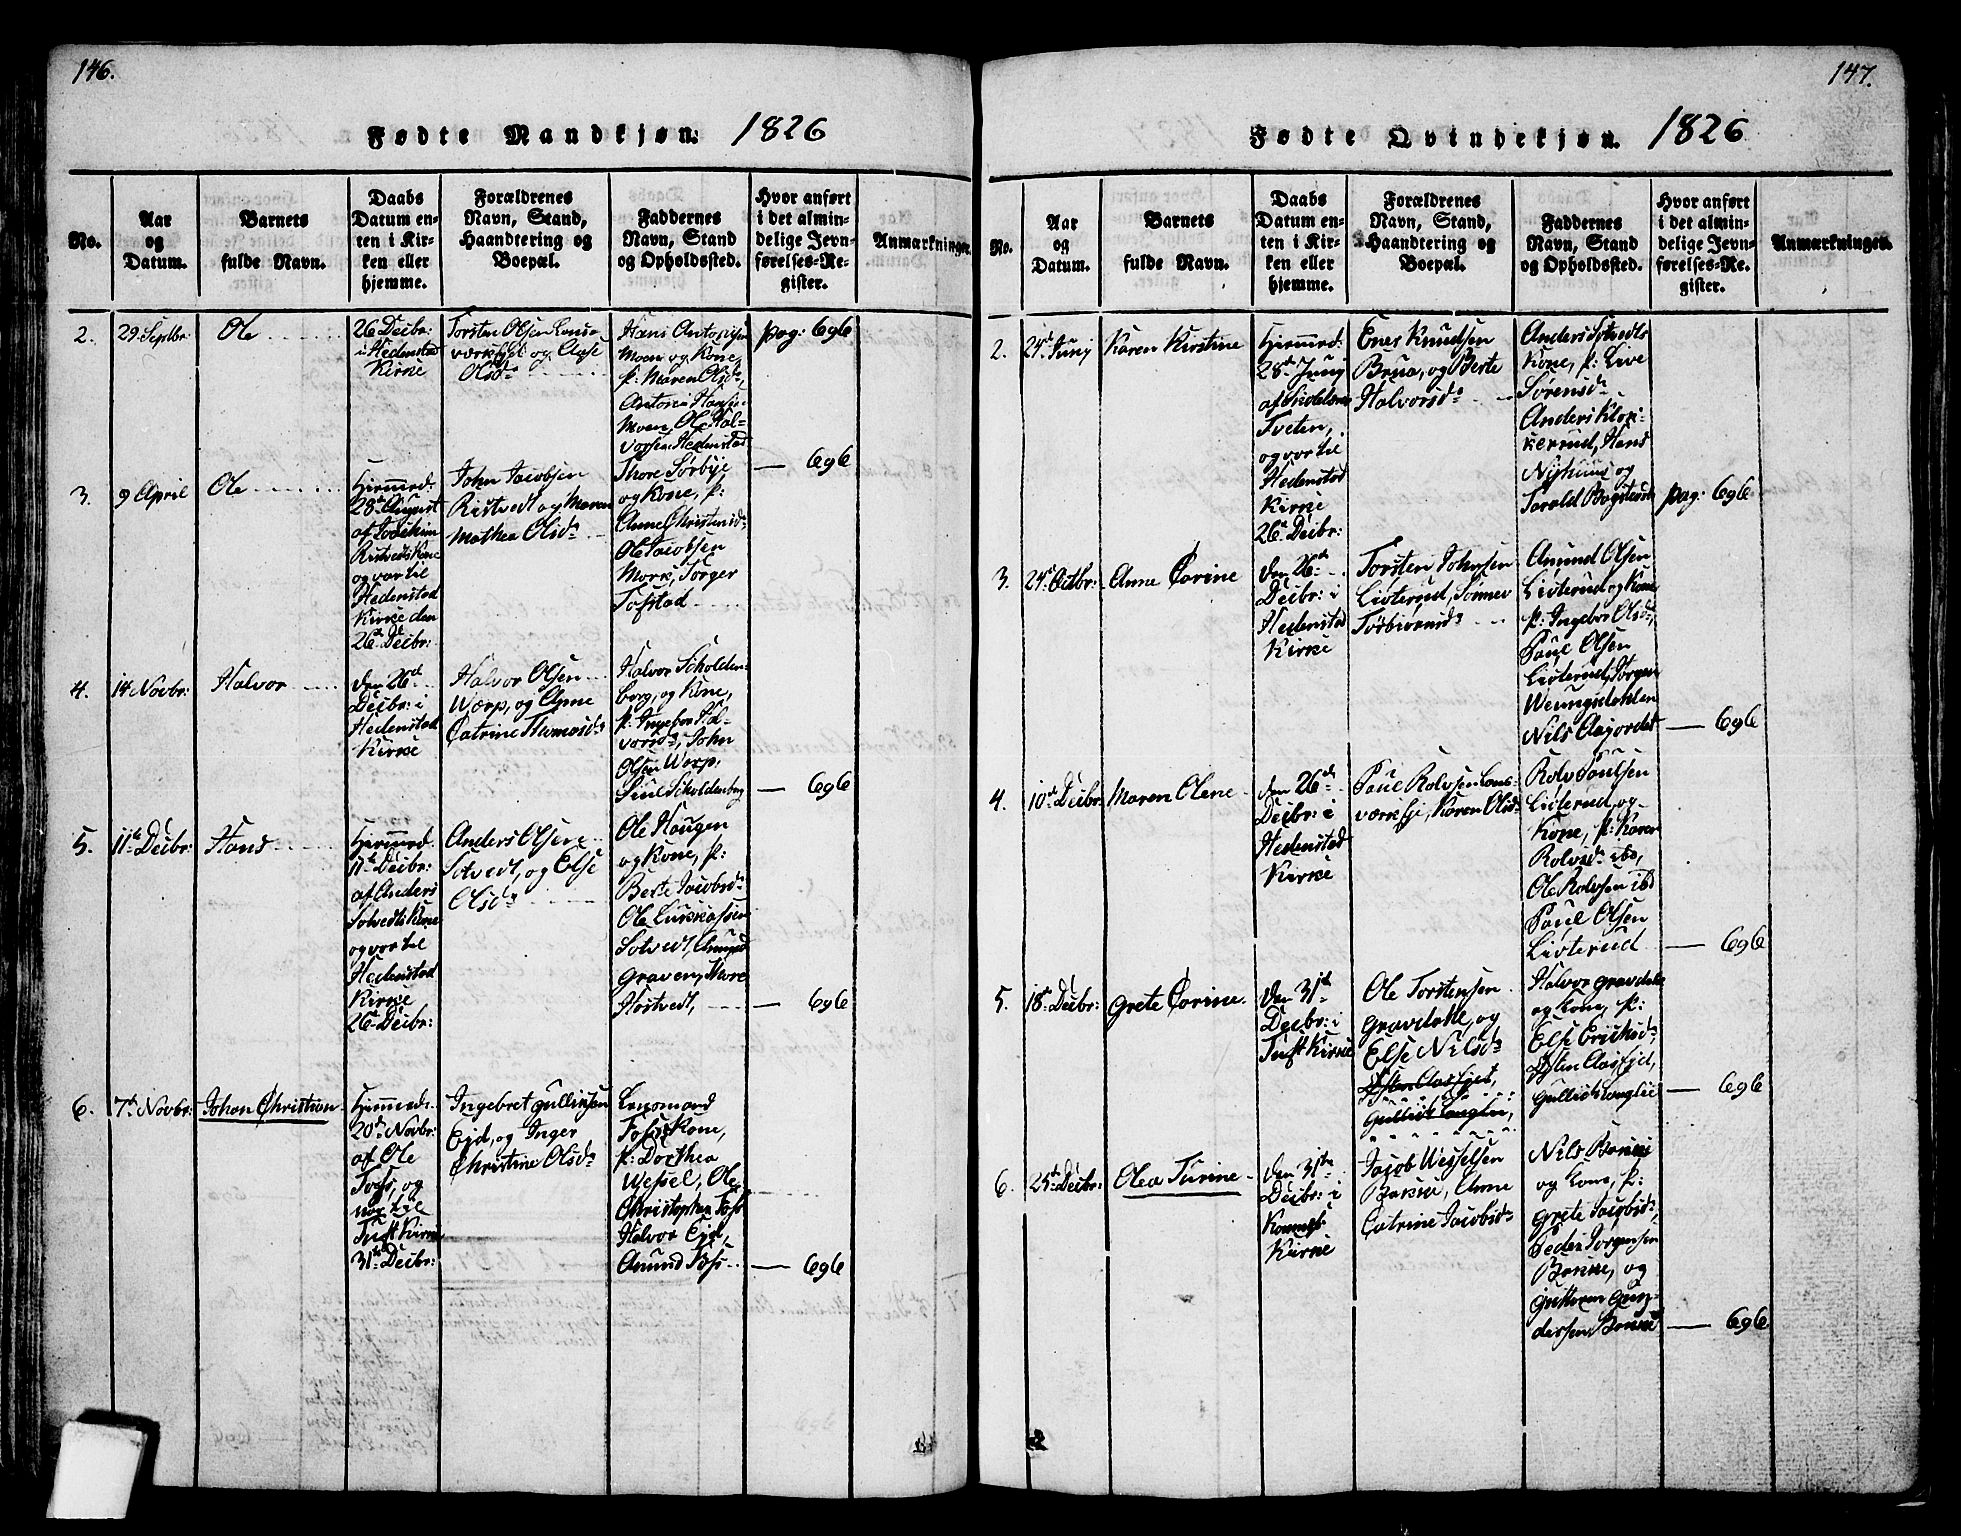 146.
Fødte Mandkjøn. 1826
No.
Aar
og
Datum.
Barnets
fulde Navn.
Daabs
Datum en-
ten i Kir-
ken eller
hjemme.
Forældrenes
Navn, Stand,
Haandtering og
Boepæl.
Faddernes
Navn, Stand
og Opholdssted.
Hvor anført
i det almin-
delige Jevn-
førelses-Re-
gister.
Anmærkninger.
2.
29 Septbr
Ole
26 Decbr:
i Hedenstad
Kirke
Torsten Olsen
og
Olsdr
Hans
Moen og Kone,
p: Maren Olsdr,
Moen, Ole Hal-
vorsen Hedenstad
pag: 696
3.
9 April
Ole
Hjemmed:
28de August
Ristvedts Kone
og var til
Hedenstad
Kirke den
26de Decbr:
John Jacobsen
Ristvedt og Maren
Mathea Olsdr
Thore Sørbye
og Kone, p:
Anne Christensdr
Ole Jacobsen
Mork, Torger
Tofstad
696
4.
14 Novbr:
Halvor
den 26de
Decbr: i
Hedenstad
Kirke
Halvor Olsen
Worp, og Anne
Catrine Thomasdr
Halvor Scholden-
berg, og Kone,
p: Ingebor Hal-
vorsdr, John
Olsen Worp,
Scholdenberg
696
5.
11te Decbr:
Hans
Hjemmed:
11te Decbr:
af Anders
Sotvedts Kone
og var til
Hedenstad
Kirke
26de Decbr:
Anders Olsen
Sotvedt, og Else
Olsdr
Ole Haugen
og Kone, p:
Berte Jacobsdr
Ole
Sotvedt,
Graven,
Hostvedt,
696
6.
7de Novbr:
Johan Christian
Hjemmed:
20de Novbr:
af Ole
Foss, og
var til
Tuft Kirke
31te Decbr:
Ingebret Gulliksen
Ejd, og Inger
Christine Olsdr
Lensmand
Foss, Kone,
p: Dorthea
Wessel, Ole
Christophen Foss
Halvor Ejd,
Amund Foss
696
147.
Fødte Qvindekjøn. 1826
No.
Aar
og
Datum.
Barnets
fulde Navn.
Daabs
Datum en-
ten i Kir-
ken eller
hjemme.
Forældrenes
Navn, Stand,
Haandtering og
Boepæl.
Faddernes
Navn, Stand
og Opholdssted.
Hvor anført
i det almin-
delige Jevn-
førelses-Re-
gister.
Anmærkninger.
2.
24de Junj
Karen Kirstine
Hjemmed:
28de Junj
af
Tveten,
og var til
Hedenstad
Kirke
26de Decbr:
Knudsen
Brua, og Berte
Halvorsdr
Anders Sotvedts
Kone, p: Live
Sørensdr
Anders Klok-
kerud, Hans
Nyhuus og
Tarald
pag: 696
3.
24de Octbr:
Anne Corine
den 26de
Decbr: i
Hedenstad
Kirke
Torsten Johnsen
Livterud,
Torbiørnsdr
Amund Olsen
Livterud og Kone
p: Ingebor Olsdr,
Paul Olsen
Livterud, Jørgen
Nils Aagordet
696
4.
10de Decbr
Maren Olene
den 26de
Decbr: i
Hedenstad
Kirke
Paul Rolvsen
Karen Olsdr
Rolv Paulsen
Livterud, og
Kone, p: Karen
Rolvsdr ibd,
Ole Rolvsen ibd
Paul Olsen
Livterud
696
5.
18de Decbr:
Grete Corine
den 31te
Decbr: i
Tuft Kirke
Ole Torstensen
Gravdahl, og
Else Nilsdr
Halvor Gravdahl
og Kone, p:
Else Eriksdr,
Østen Aasejd,
Gullik Langlie
696
6.
25de Decbr:
Olea Turine
den 31te
Decbr: i
Komnes
Kirke
Jacob Wesselsen
Bakke, Anne
Catrine Jacobsdr
Nils Bakke
og Kone, p:
Grete Jacobsdr,
Peder Jørgensen
Bakke, og
Guttorm Gun-
dersen Bakke
696